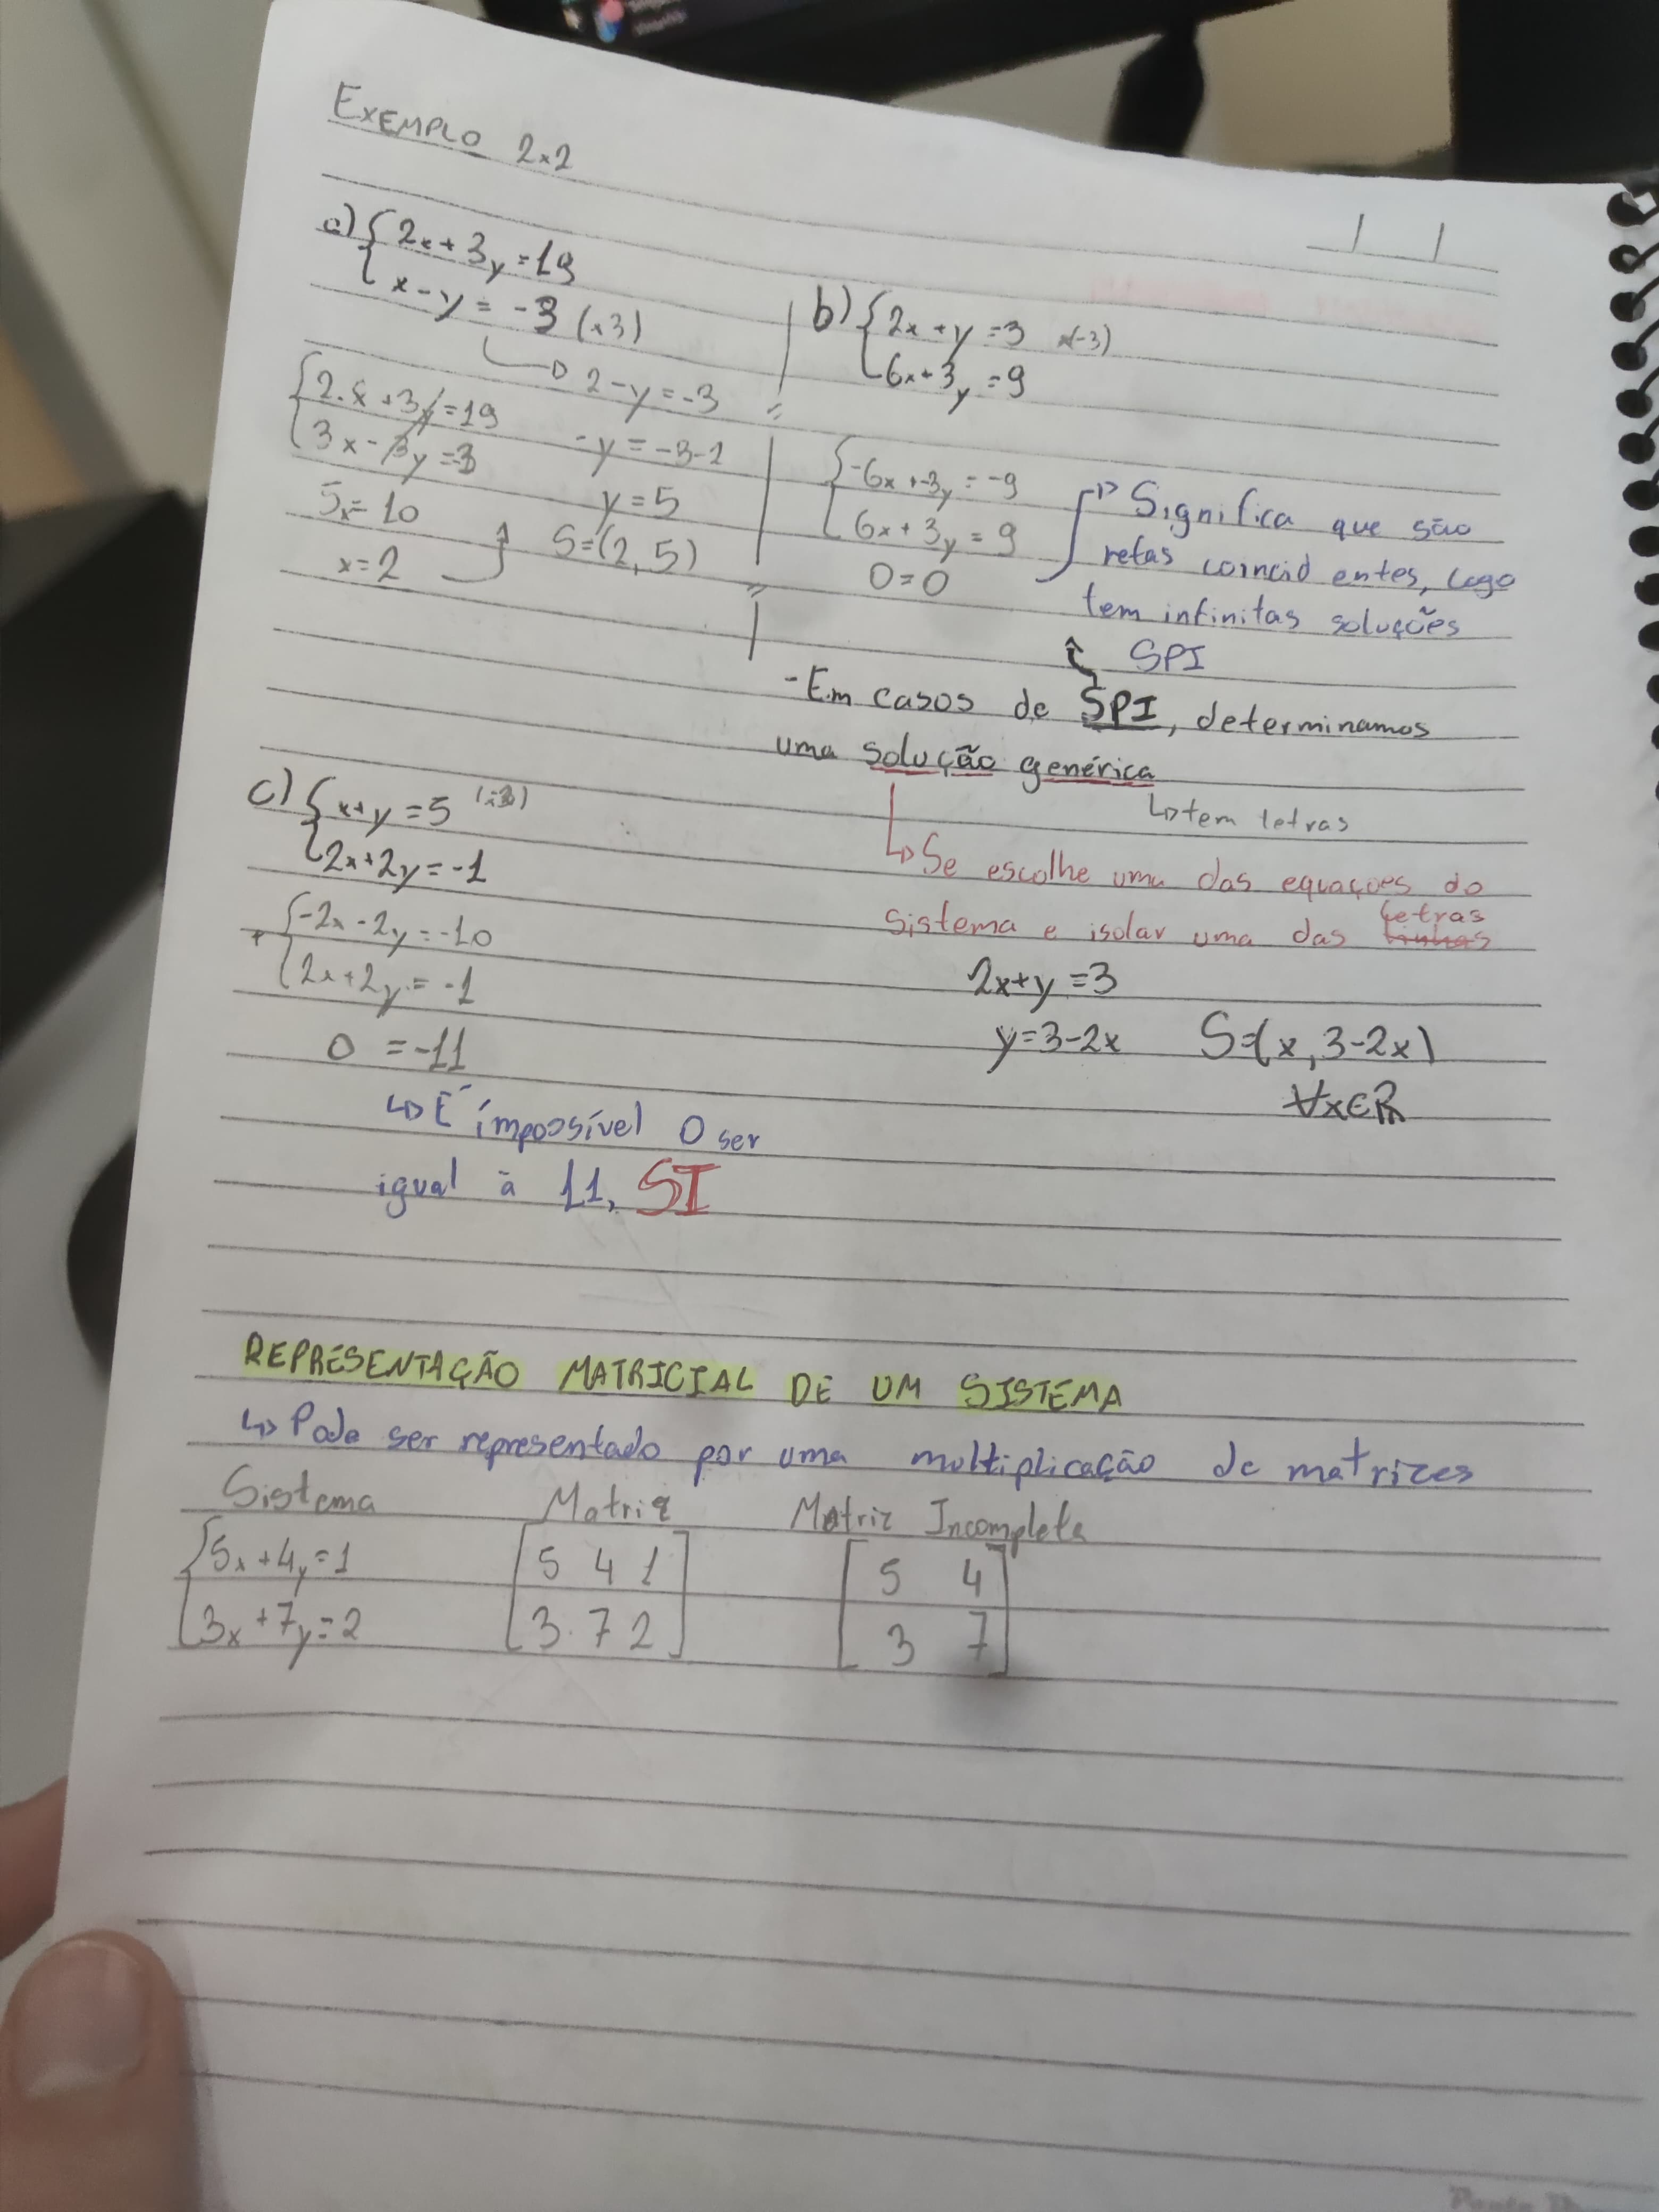 EXEMPLO 2x2
a) { 2x + 3y = 19
x - y = -3 (x3)
2 - y = -3
{ 2.x + 3y = 19
3x - 3y = -3
-y = -3-2
5x = 10
y = 5
x = 2
S = (2, 5)
b) { 2x + y = 3 x(-3)
6x + 3y = 9
{ -6x + -3y = -9
6x + 3y = 9
0 = 0
Significa que são
retas coincid entes, logo
tem infinitas soluções
SPI
- Em casos de SPI, determinamos
uma solução genérica
tem letras
Se escolhe uma das equações do
sistema e isolar uma das linhas letras
2x+y = 3
y = 3-2x S=(x, 3-2x)
∀x∈R
c) { x + y = 5
2x + 2y = -1
+ { -2x - 2y = -10
2x + 2y = -1
0 = -11
É impossível 0 ser
igual à 11, SI
REPRESENTAÇÃO MATRICIAL DE UM SISTEMA
Pode ser representado por uma multiplicação de matrizes
Sistema Matriz Matriz Incompleta
{ 5x + 4y = 1 [ 5 4 1 ] [ 5 4 ]
3x + 7y = 2 [ 3 7 2 ] [ 3 7 ]